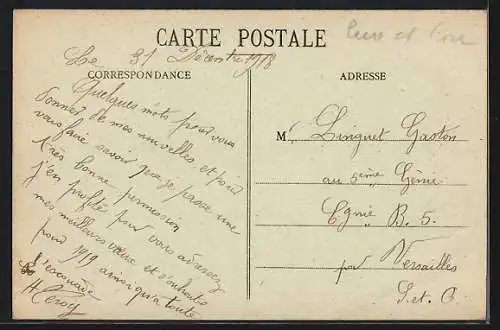 CARTE POSTALE
Eure et Loir
Le 31 Décembre 1918
CORRESPONDANCE
ADRESSE
Quelques mots pour vous
donner de mes nouvelles et pour
vous faire savoir que je passe une
très bonne permission
j'en profite pour vous adresser
mes meilleurs vœux et souhaits
pour 1919 ainsi qu'à toute
l'escouade
H Leroy
M. Linguet Gaston
au 5ème Génie
Cgnie B. 5.
par Versailles
S. et O.